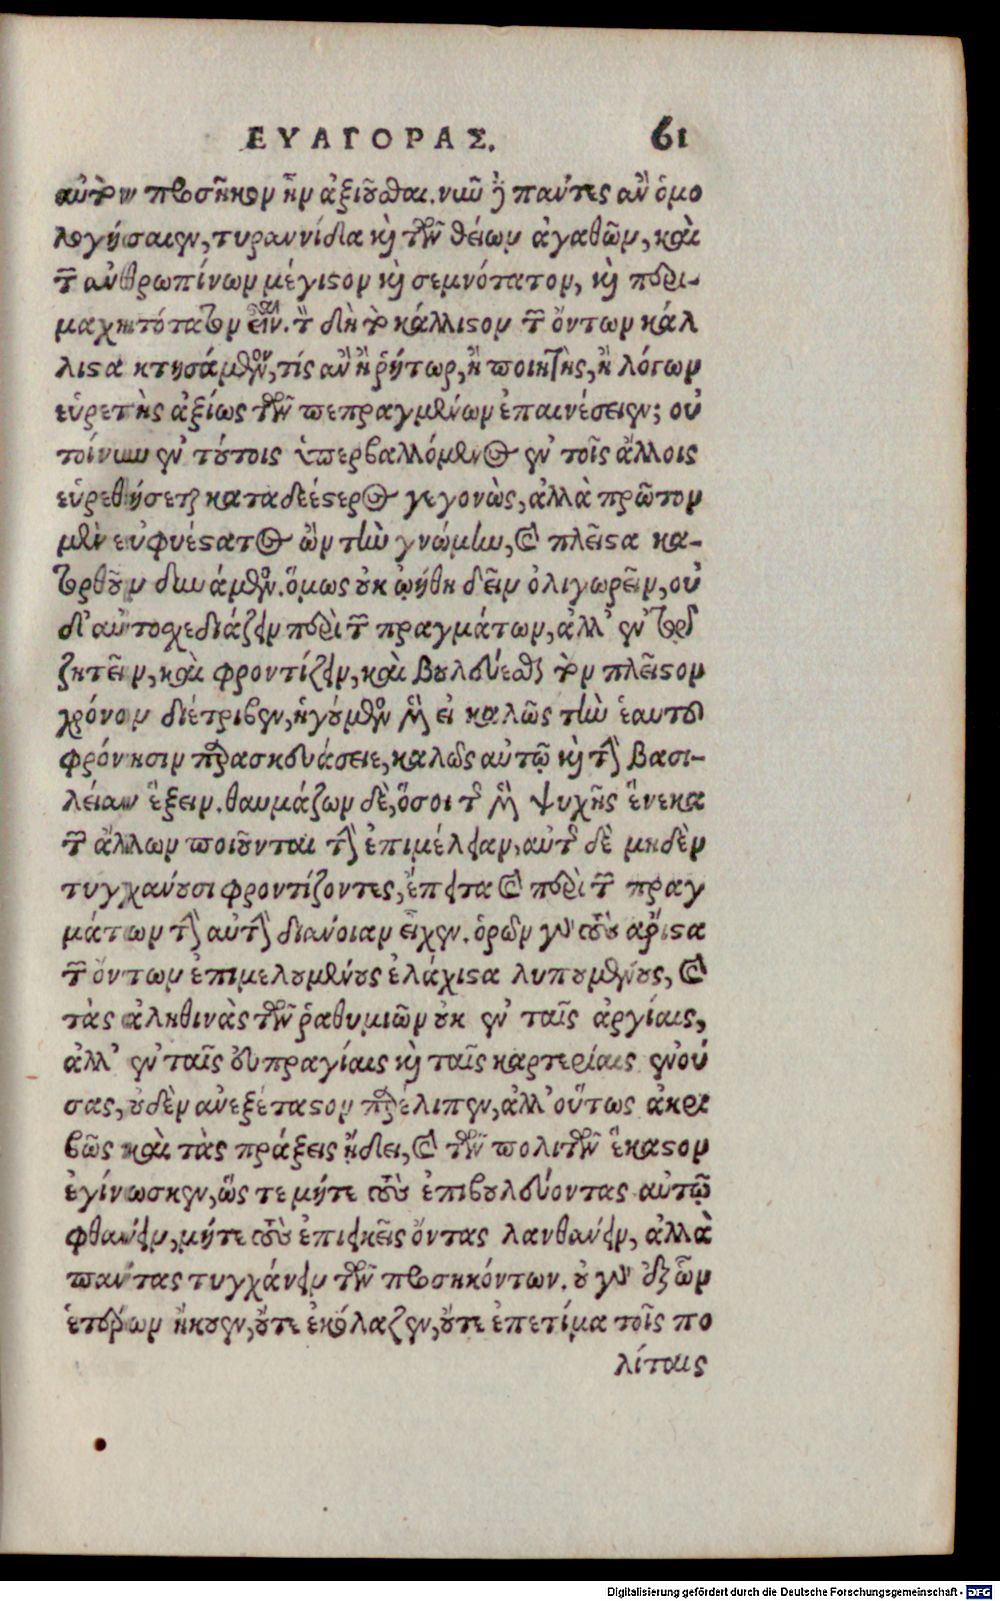 ΕΥΑΓΟΡΑΣ. 61
αὐτὸν προσῆκον ἦν ἀξιοῦσθαι. νῦν δὲ πάντες ἂν ὁμο
λογήσαιεν, τυραννίδα καὶ τῶν θείων ἀγαθῶν, καὶ
τῶν ἀνθρωπίνων μέγιστον καὶ σεμνότατον, καὶ περι-
μαχητότατον εἶναι. τὸν δὴ τὸ κάλλιστον τῶν ὄντων κάλ
λιστα κτησάμενον, τίς ἂν ἢ ῥήτωρ, ἢ ποιητὴς, ἢ λόγων
εὑρετὴς ἀξίως τῶν πεπραγμένων ἐπαινέσειεν; οὐ
τοίνυν ἐν τούτοις ὑπερβαλλόμενος ἐν τοῖς ἄλλοις
εὑρεθήσεται καταδεέστερος γεγονὼς, ἀλλὰ πρῶτον
μὲν εὐφυέστατος ὢν τὴν γνώμην, καὶ πλεῖστα κα-
τορθοῦν δυνάμενος. ὅμως οὐκ ᾠήθη δεῖν ὀλιγωρεῖν, οὐ
δ' αὐτοσχεδιάζειν περὶ τῶν πραγμάτων, ἀλλ' ἐν τῷ
ζητεῖν, καὶ φροντίζειν, καὶ βουλεύεσθαι τὸν πλεῖστον
χρόνον διέτριβεν, ἡγούμενος μὲν εἰ καλῶς τὴν ἑαυτοῦ
φρόνησιν παρασκευάσειε, καλῶς αὐτῷ καὶ τὴν βασι-
λείαν ἕξειν. θαυμάζων δὲ, ὅσοι τῶν μὲν ψυχῆς ἕνεκα
τῶν ἄλλων ποιοῦνται τὴν ἐπιμέλειαν, αὐτῆς δὲ μηδὲν
τυγχάνουσι φροντίζοντες, ἔπειτα καὶ περὶ τῶν πραγ
μάτων τὴν αὐτὴν διάνοιαν εἶχεν. ὁρῶν γὰρ τοὺς ἄριστα
τῶν ὄντων ἐπιμελουμένους ἐλάχιστα λυπουμένους, καὶ
τὰς ἀληθινὰς τῶν ῥαθυμιῶν οὐκ ἐν ταῖς ἀργίαις,
ἀλλ' ἐν ταῖς εὐπραγίαις καὶ ταῖς καρτερίαις ἐνού
σας, οὐδὲν ἀνεξέταστον παρέλιπεν, ἀλλ' οὕτως ἀκρι
βῶς καὶ τὰς πράξεις ᾔδει, καὶ τῶν πολιτῶν ἕκαστον
ἐγίνωσκεν, ὥς τε μήτε τοὺς ἐπιβουλεύοντας αὐτῷ
φθάνειν, μήτε τοὺς ἐπιεικεῖς ὄντας λανθάνειν, ἀλλὰ
πάντας τυγχάνειν τῶν προσηκόντων. οὐ γὰρ ἐξ ὧν
ἑτέρων ἤκουεν, οὔτε ἐκόλαζεν, οὔτε ἐπετίμα τοῖς πο
λίταις
Digitalisierung gefördert durch die Deutsche Forschungsgemeinschaft - DFG